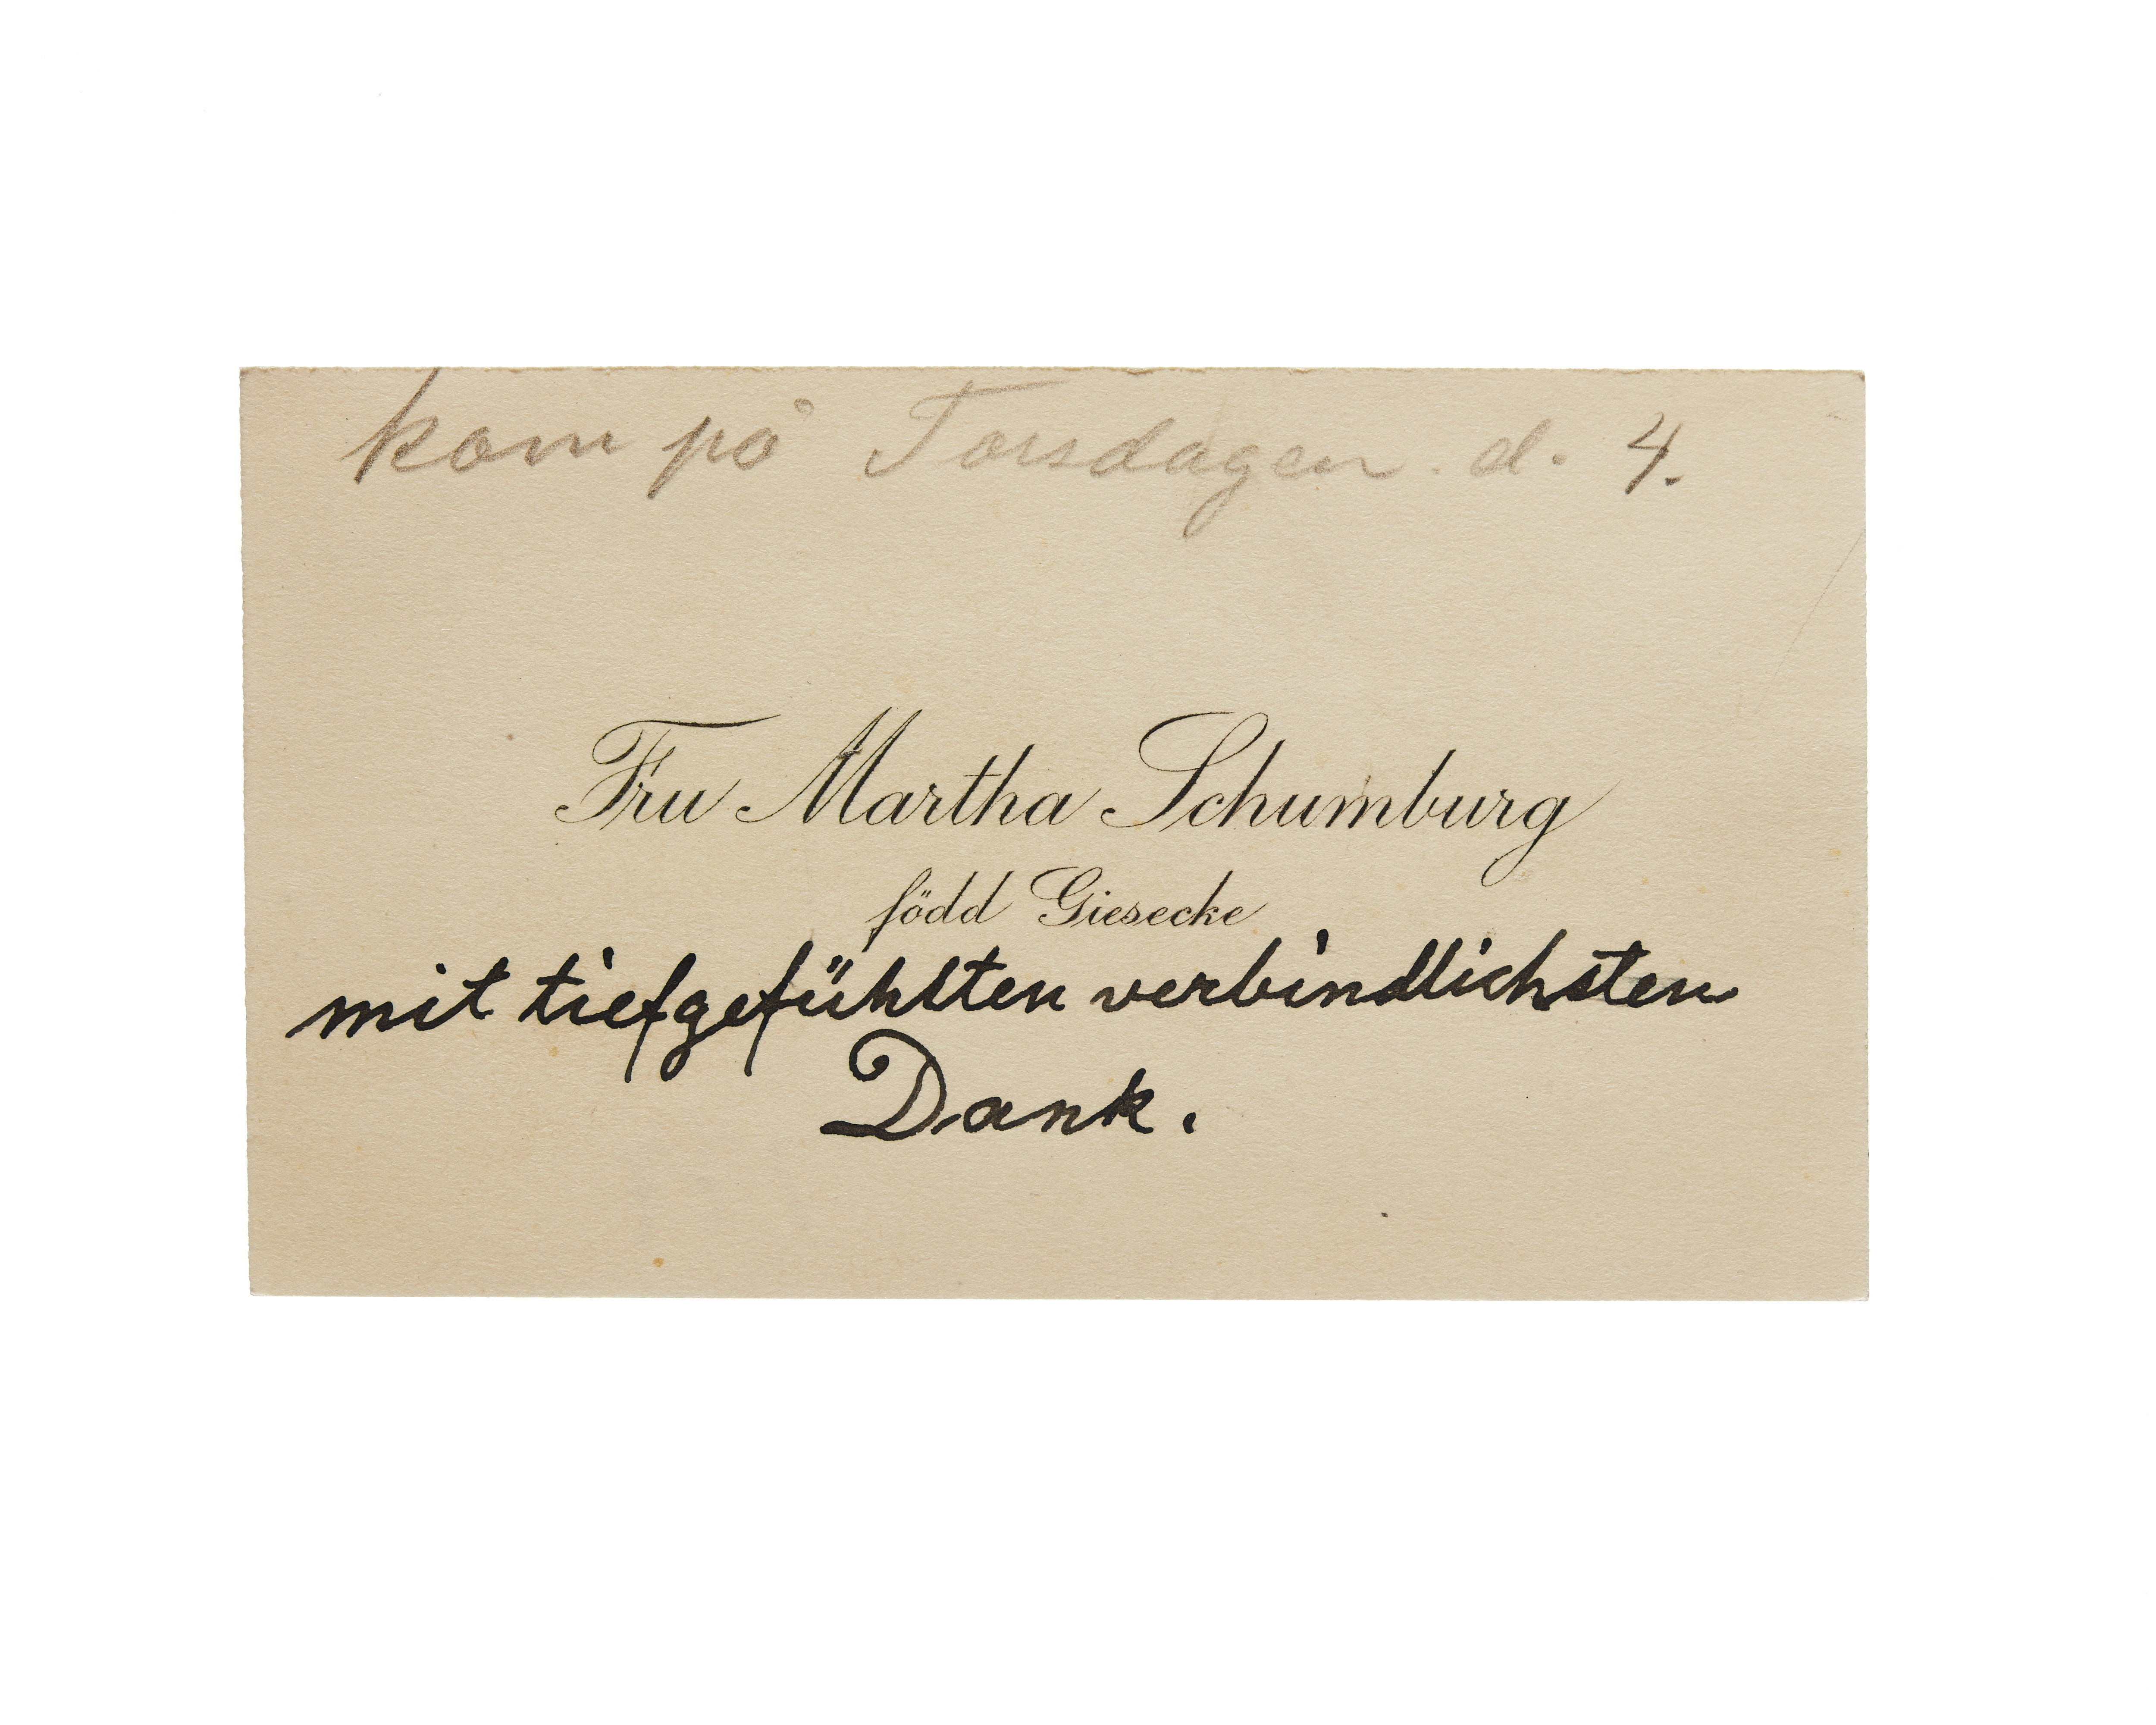 kom på Torsdagen. d. 4.
Fru Martha Schumburg
född Giesecke
mit tiefgefühlten verbindlichsten
Dank.